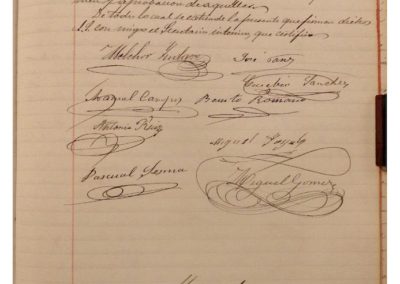 y aprobacion de aquellas.
De todo lo cual se extiende la presente que firman dichos
S.S. conmigo el Secretario interino, que certifico
Melchor José Sanz
Eusebio Sanchez
Manuel Campos Benito Romano
Antonio Ruiz
Miguel
Pascual Serna
Miguel Gomez